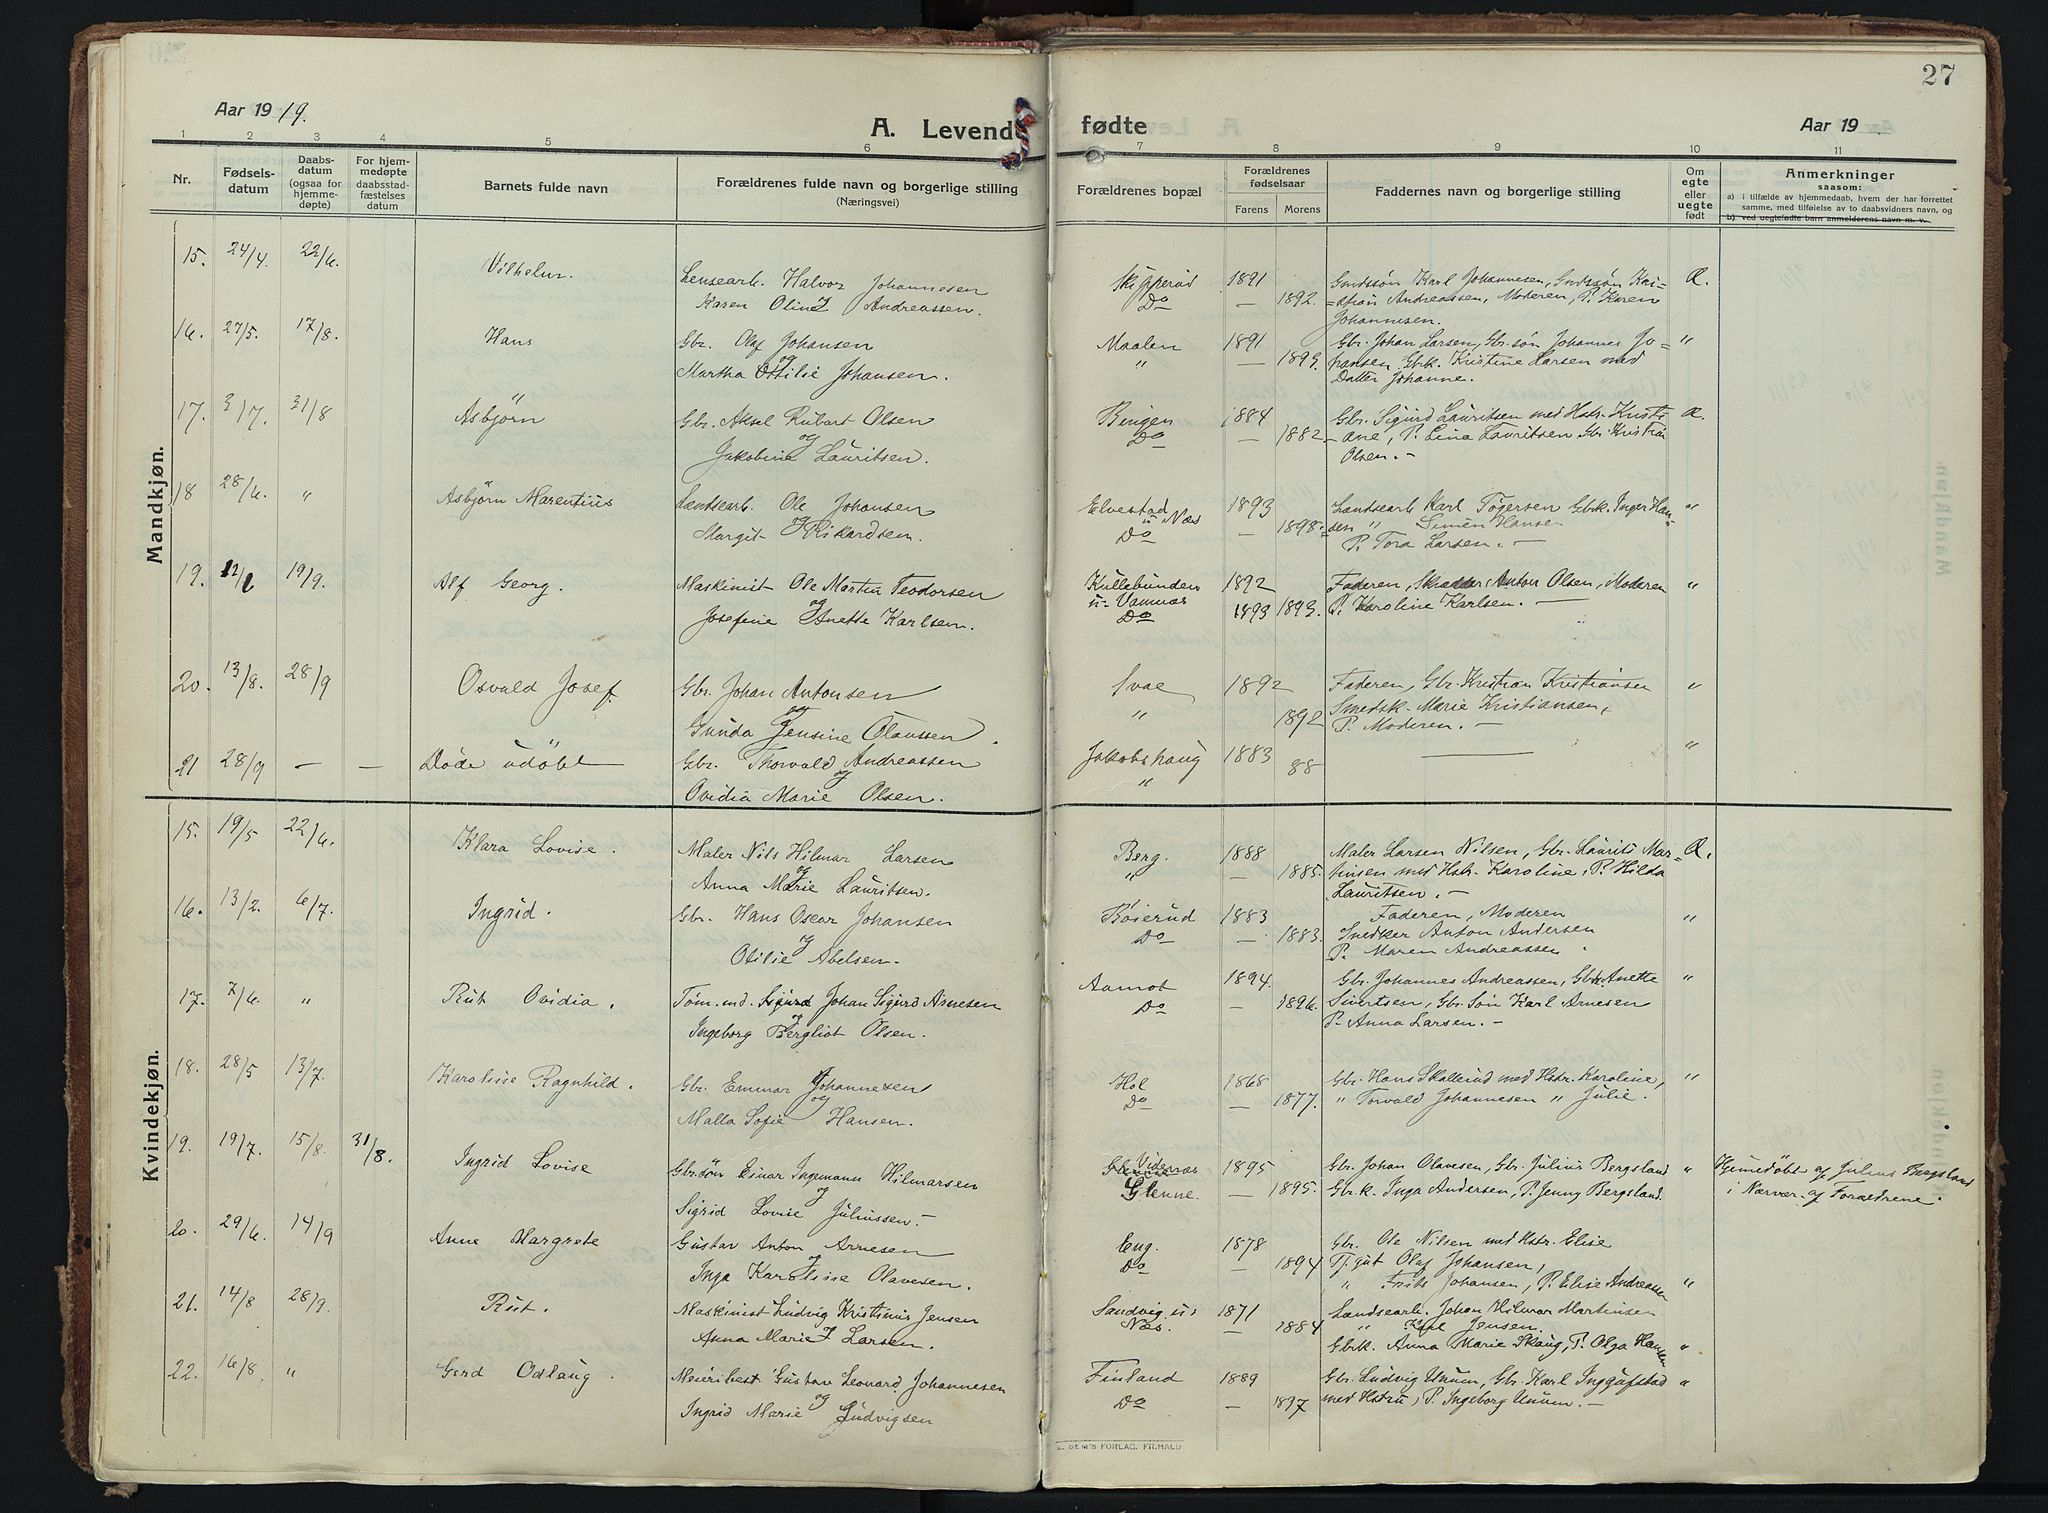 27
Aar 1919.
A. Levende fødte
Aar 19
1 2 3 4 5 6 7 8 9 10 11
Nr.
Fødsels-
datum
Daabs-
datum
(ogsaa for
hjemme-
døpte)
For hjem-
medøpte
daabsstad-
fæstelses
datum
Barnets fulde navn
Forældrenes fulde navn og borgerlige stilling
(Næringsvei)
Forældrenes bopæl
Forældrenes
fødselsaar
Farens Morens
Faddernes navn og borgerlige stilling
Om
egte
eller
uegte
født
Anmerkninger
saasom:
a) i tilfælde av hjemmedaab, hvem der har forrettet
samme, med tilføielse av to daabsvidners navn, og
b) ved uegtefødte barn anmelderens navn m. v.
Mandkjøn.
15. 24/4. 22/6. Vilhelm. Lensearb. Halvor Johannesen Skipperud 1891 Gmdssøn Karl Johannesen, Gmdssøn Kri= Æ.
og Karen Oline Andreassen. Do — 1892. =stian Andreassen, Moderen, P. Karen
Johannesen.
16. 27/5. 17/8. Hans Gbr. Olaf Johansen Maalen 1891 Gbr. Johan Larsen, Gbr. søn Johannes Jo= "
og Martha Ottilie Johansen. " — 1893. hansen Gbk. Kristine Larsen med
Datter Johanne.
17. 3/7. 31/8 Asbjörn Gbr. Aksel Robert Olsen Bingen 1884 Gbr. Sigurd Lauritsen med Hstr. Kristi Æ.
og Jakobine Lauritsen. Do — 1882 -ane, P. Lina Lauritsen Gbr. Kristian
Olsen. -
18 28/6. " Asbjörn Marentius Landsearb. Ole Johansen Elvestad 1893 Landsearb Karl Tögersen Gbk. Inger Han= "
og Margit Rikardsen. u/Næs Do — 1898 den " Simen Hansen
P. Tora Larsen. -
19. 19/9. Alf Georg. Maskinist Ole Martin Teodorsen Kullebunden 1892 Faderen, Skrædder Anton Olsen, Moderen "
og Josefine Anette Karlsen. u. Vannæs Do 1893 1893. P. Karoline Karlsen. -
20. 13/8. 28/9 Osvald Josef. Gbr. Johan Antonsen Svae 1892 Faderen, Gbr. Kristian Kristiansen "
og Gunda Jensine Olaussen. " 1892 Smedsk. Marie Kristiansen,
P. Moderen. -
21 28/9 — — Döde udöbt Gbr. Thorvald Andreassen Jakobshaug 1883 — "
og Ovidia Marie Olsen. " 88
Kvindekjøn.
15. 19/5 22/6. Klara Lovise. Maler Nils Hilmar Larsen Berg. 1888 Maler Larsen Nilsen, Gbr. Laurits Mar= Æ.
og Anna Marie Lauritsen. " — 1885. tinsen med Hstr. Karoline, P. Hilda
Lauritsen. -
16. 13/2. 6/7. Ingrid. Gbr. Hans Oscar Johansen Böierud 1883 Faderen, Moderen "
og Otilie Abelsen. Do — 1883. Snedker Anton Andersen
P. Maren Andreassen
17. 7/6. " Rut Ovidia. Töm.md. Sigurd Johan Sigurd Arnesen Aamot 1894. Gbr. Johannes Andreassen, Gbk Anette "
og Ingeborg Bergliot Olsen. Do — 1896. Sivertsen, Gbr. Søn Karl Arnesen
P. Anna Larsen. -
18. 28/5 13/7. Karoline Ragnhild. Gbr. Emmar Johannesen Hol 1868 Gbr. Hans Skallerud med Hstr. Karoline, "
og Malla Sofie Hansen. Do — 1877. " Torvald Johannesen " Julie.
19. 19/7. 15/8. 31/8. Ingrid Lovise Gbr.sön Einar Ingemann Hilmarsen Videnæs 1895 Gbr. Johan Olavesen, Gbr. Julius Bergsland " Hjemmedöbt af Julius Bergsland
og Sigrid Lovise Juliussen. Glenne. — 1895. Gbr.k. Inga Andersen, P. Jenny Bergsland. i Nærvær af Forældrene.
20. 29/6. 14/9 Anne Margrete Gustav Anton Arnesen Eng. 1878 Gbr. Ole Nilsen med Hstr. Elise
og Inga Karoline Olavesen. Do — 1894 Tj.gut Olaf Johansen,
" Frits Johansen, P. Elise Andreassen "
21. 14/8 28/9. Rut. Maskinist Ludvig Kristinus Jensen Sandvig u: 1871 Landsearb. Johan Hilmar Martinsen
og Anna Marie Larsen. Næs. — 1884 " Karl Jensen.
Gbrk. Anna Marie Skaug, P. Olga Hansen "
22. 16/8 " Gerd Odlaug. Meieribest Gustav Leonard Johannesen Finland 1889 Gbr. Ludvig Unum, Gbr. Karl Inggafstad "
og Ingrid Marie Ludvigsen Do — 1897 med Hstru, P. Ingeborg Unum. -
E. SEM'S FORLAG, FR.HALD